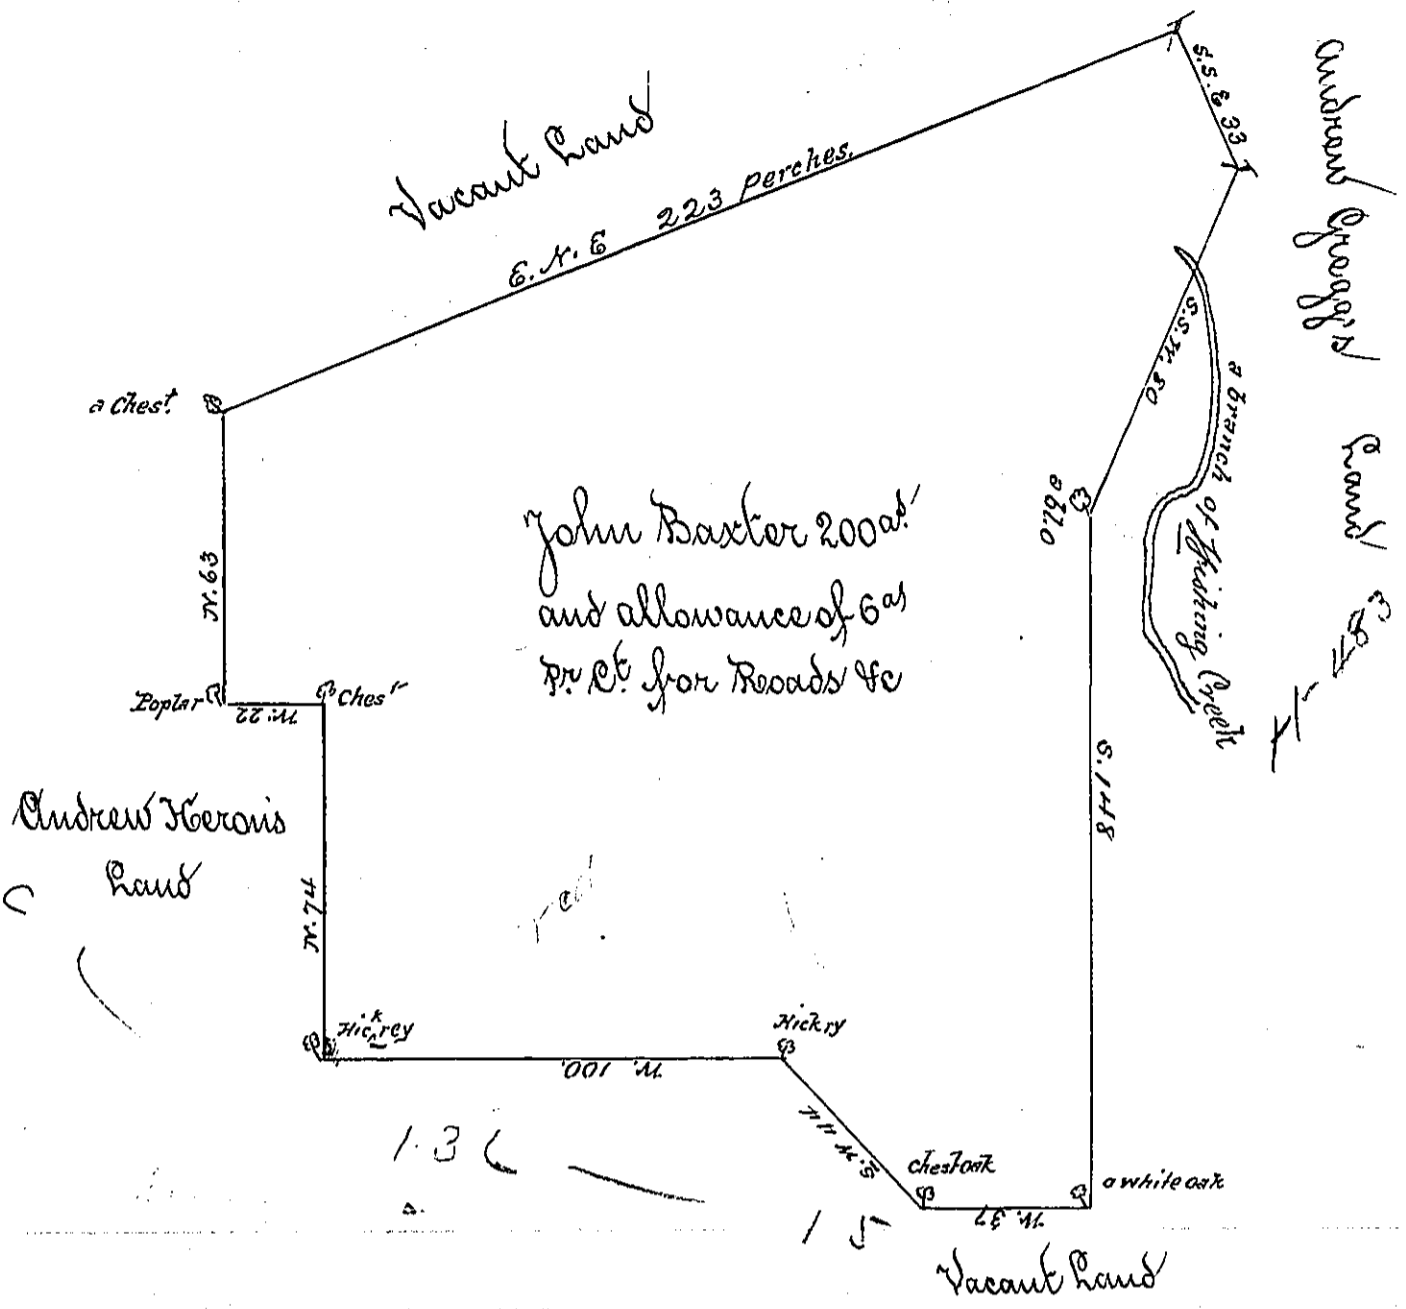 Vacant Land
E. N. E 223 Perches.
S.S.E 33
Andrew Gregg's Land
S.S.W. 80
a branch of Fishing Creek
a Chest.
a bl.o
N. 63
John Baxter 200 as.
and allowance of 6 as
Pr. Ct. for Roads &c
Poplar
W. 22
Chest
S. 148
Andrew Heron's
Land
N. 74
Hickrey
k
W. 100.
Hickry
1.3
Chest oak
a white oak
W. 37
1 5
Vacant Land